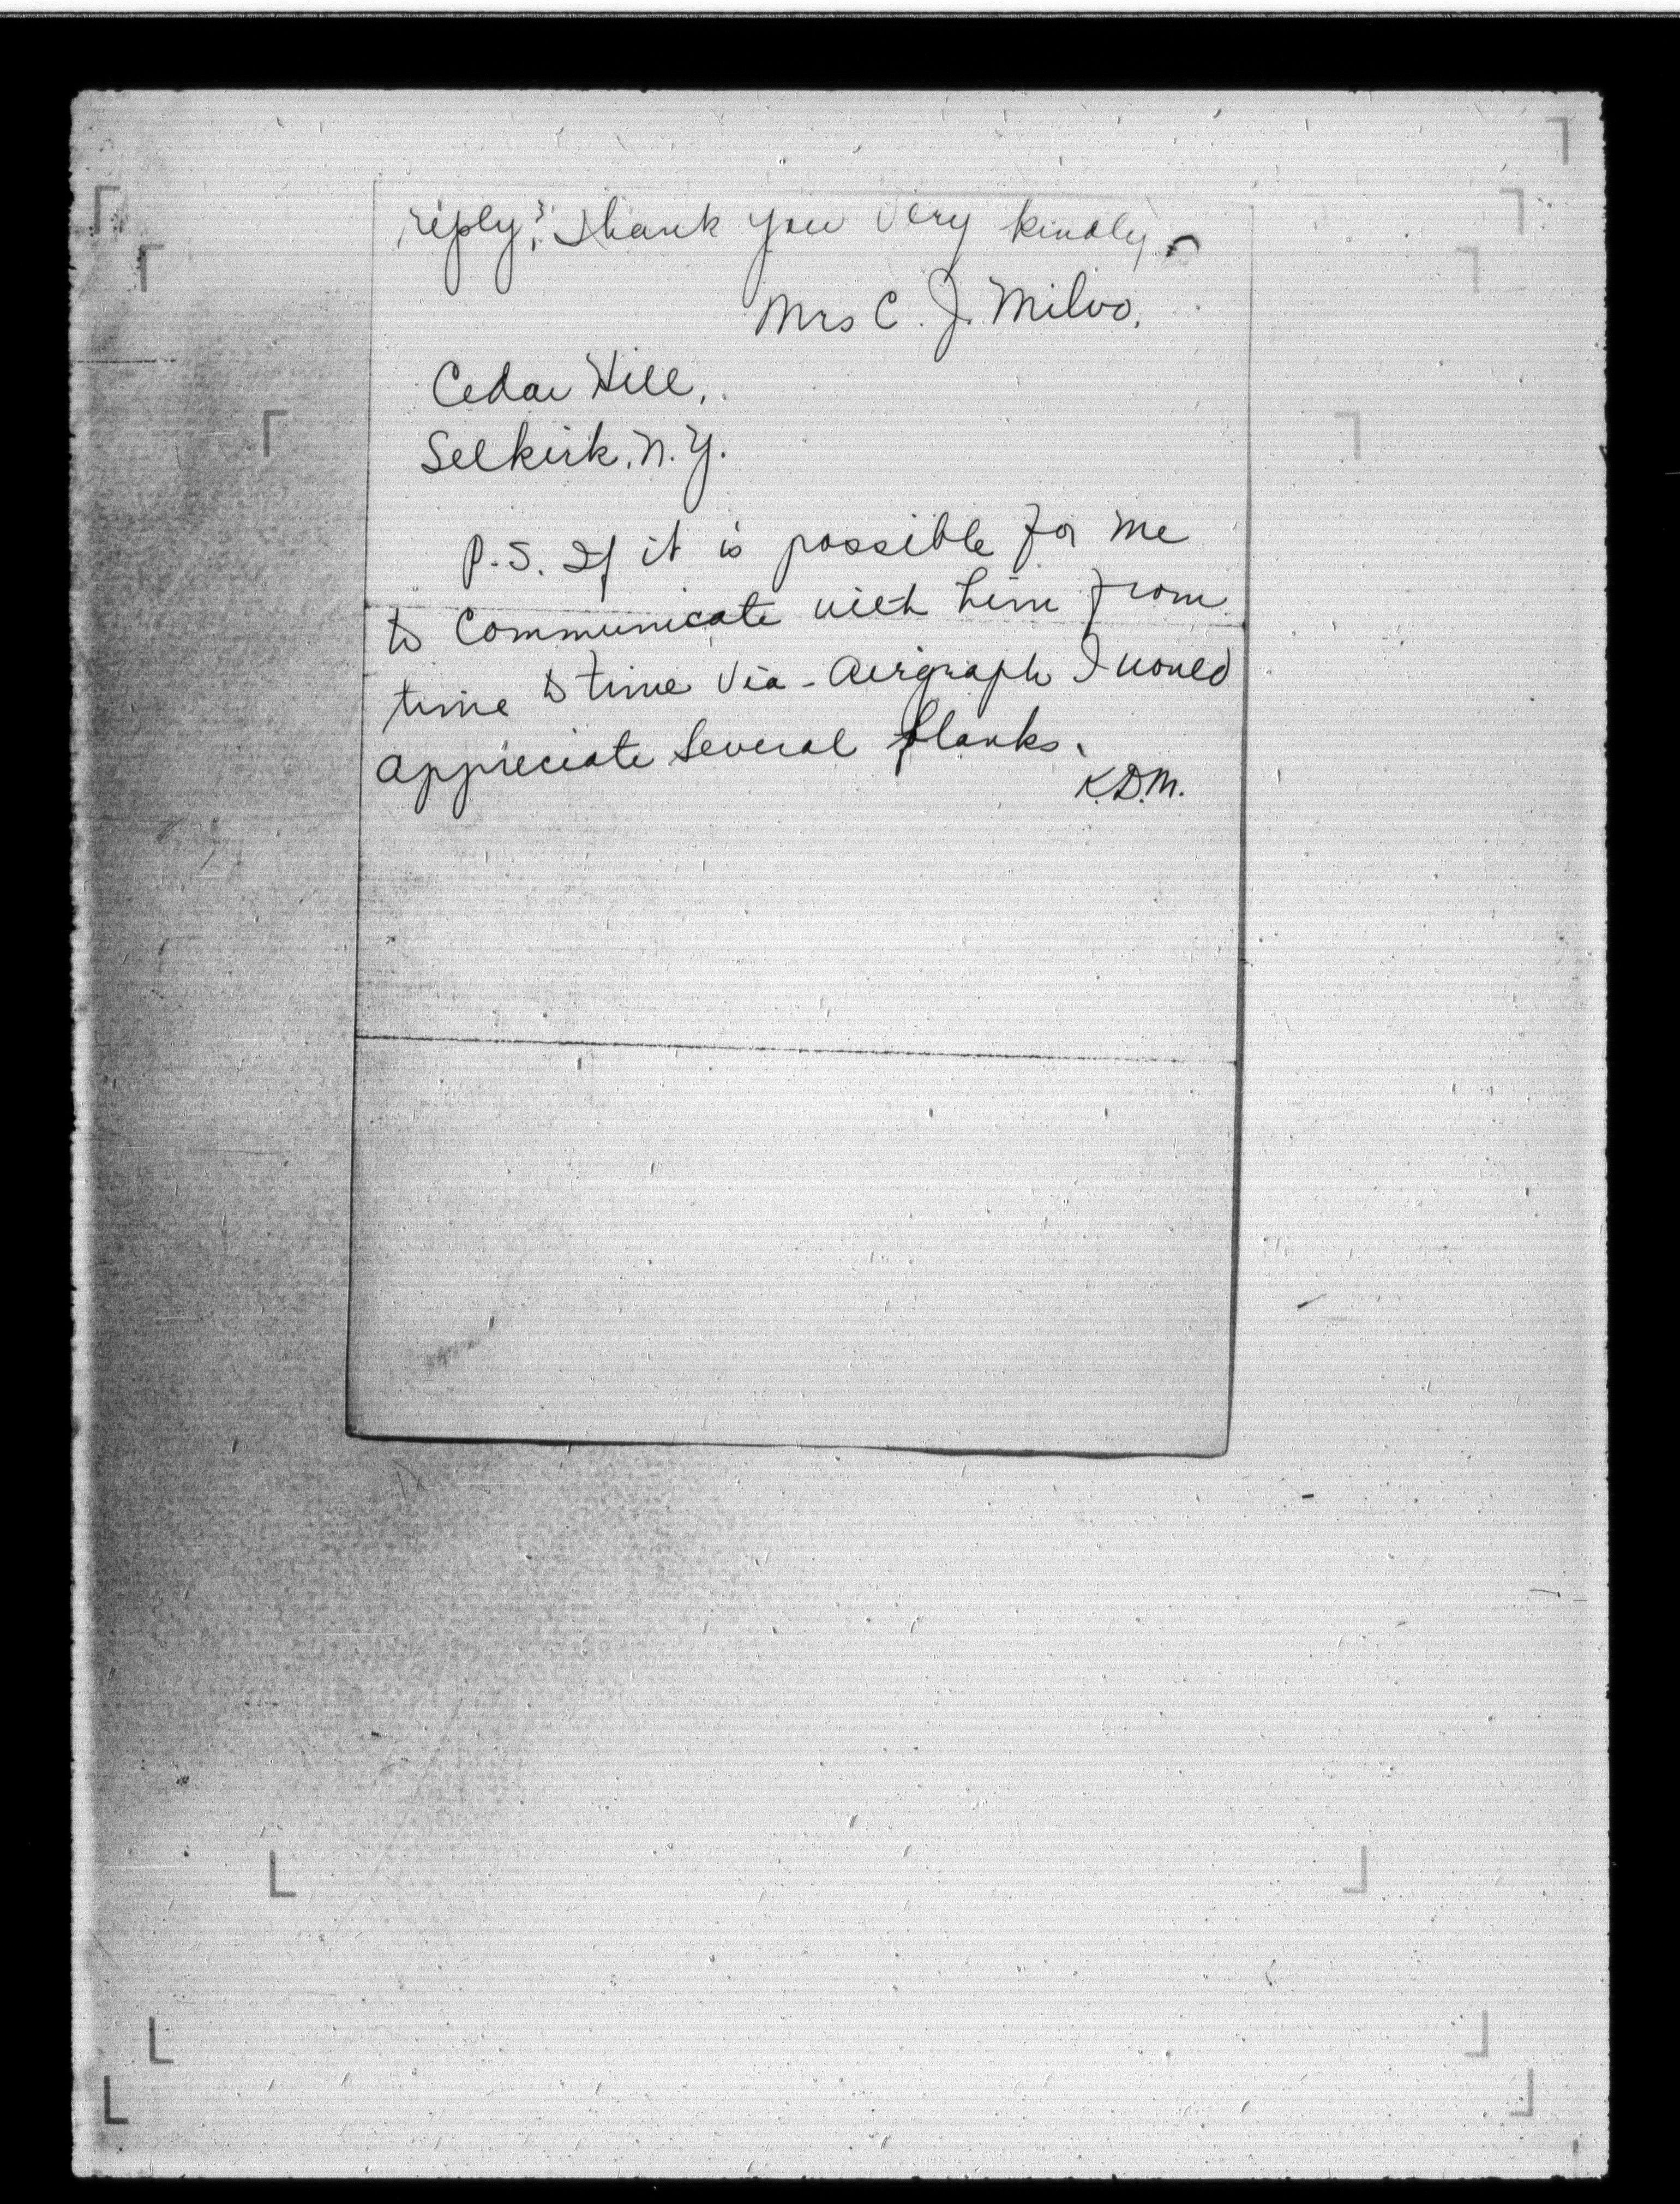 reply? Thank you very kindly.
Mrs C. J. Milvo.
Cedar Hill,
Selkirk, N.Y.
P.S. If it is possible for me
to communicate with him from
time to time via - airgraph I would
appreciate several blanks.
K.D.M.